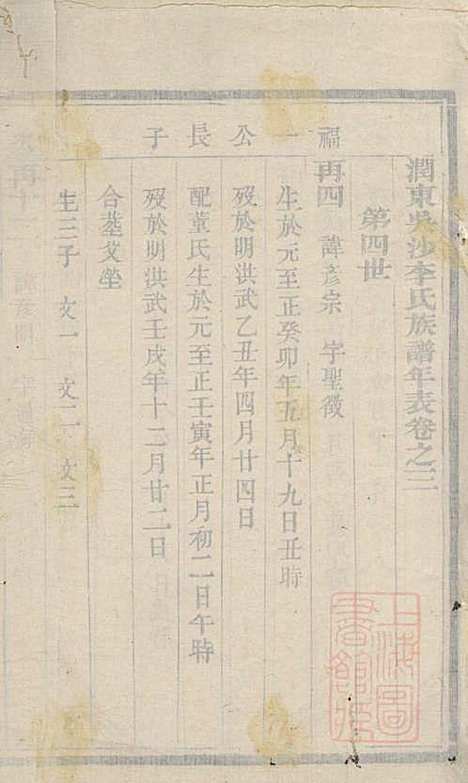 潤東吳沙李氏族譜年表卷之三
第四世
福一公長子
再四 諱彦宗 字聖徵
生於元至正癸卯年五月十九日丑時
歿於明洪武乙丑年四月廿四日
配董氏生於元至正壬寅年正月初二日午時
歿於明洪武壬戌年十二月廿二日
合塟艾塋
生三子 文一 文二 文三
上海圖書館藏